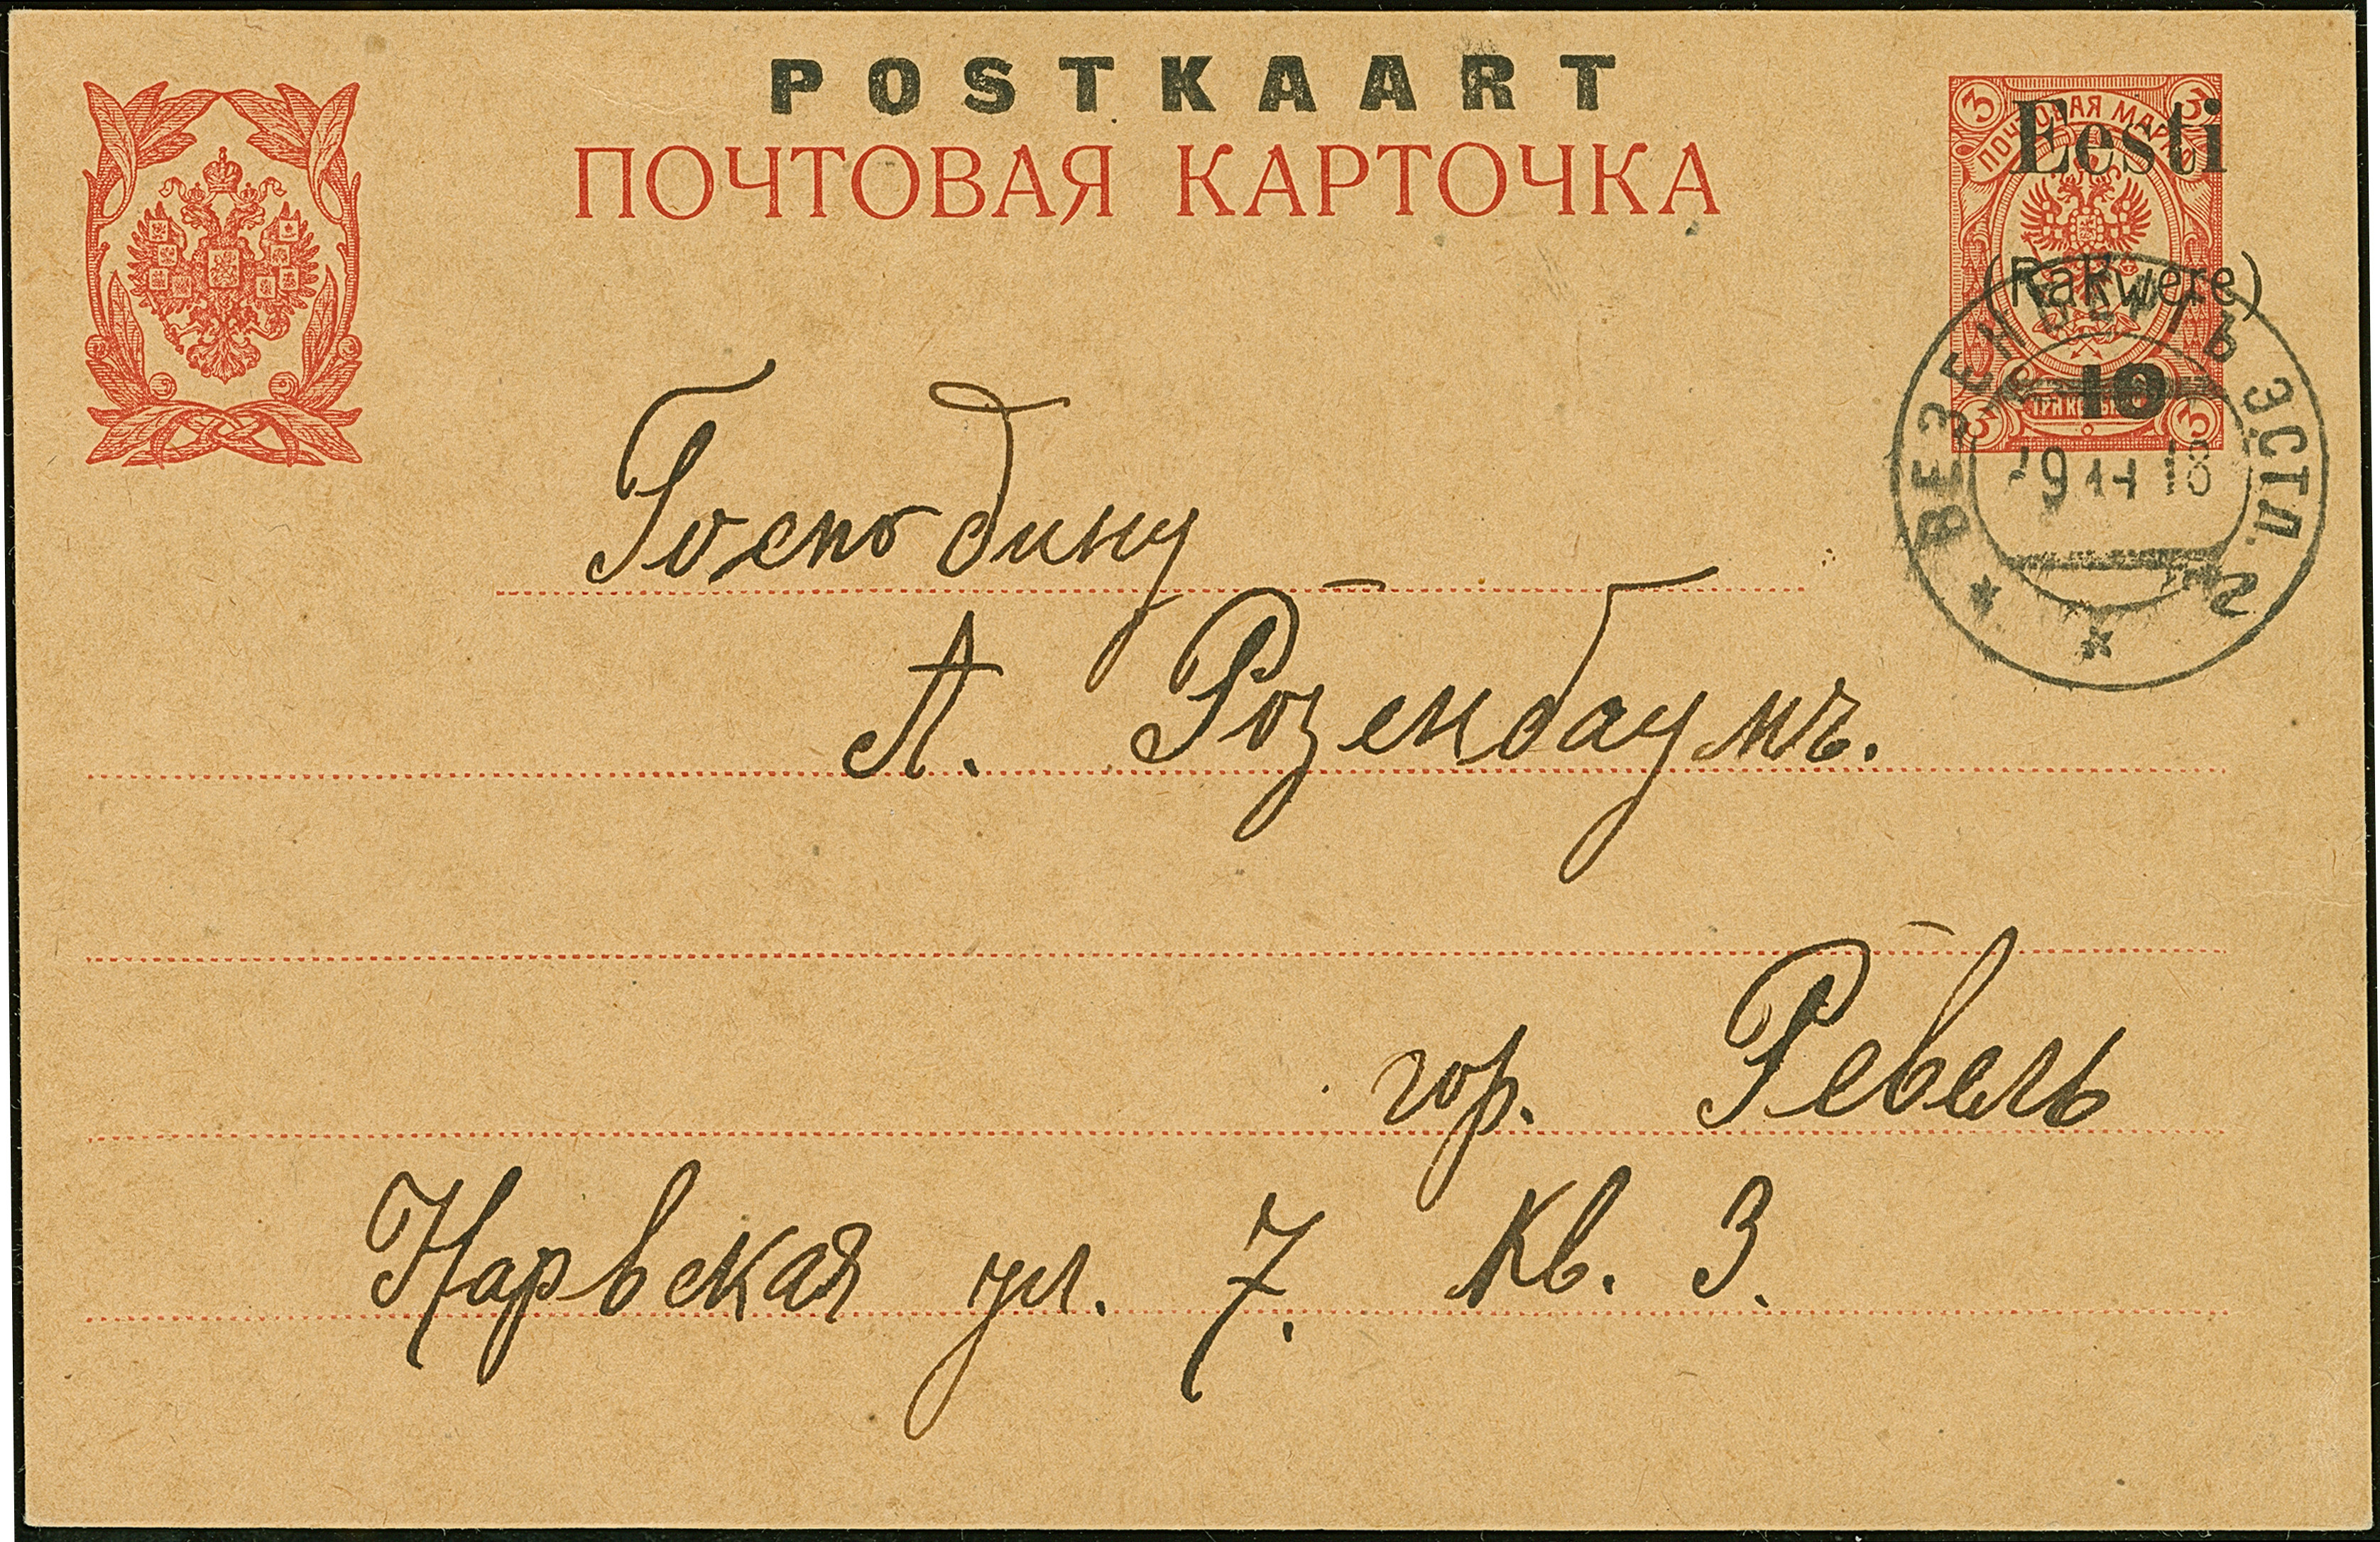 POSTKAART
ПОЧТОВАЯ КАРТОЧКА
3 3
ПОЧТОВАЯ МАРКА
Eesti
(Rakwere)
10
3 3
ВЕЗЕНБЕРГЪ ЭСТЛ. 2
18
Господину
А. Розенбаумъ.
гор. Ревель
Нарвская ул. 7. Кв. 3.